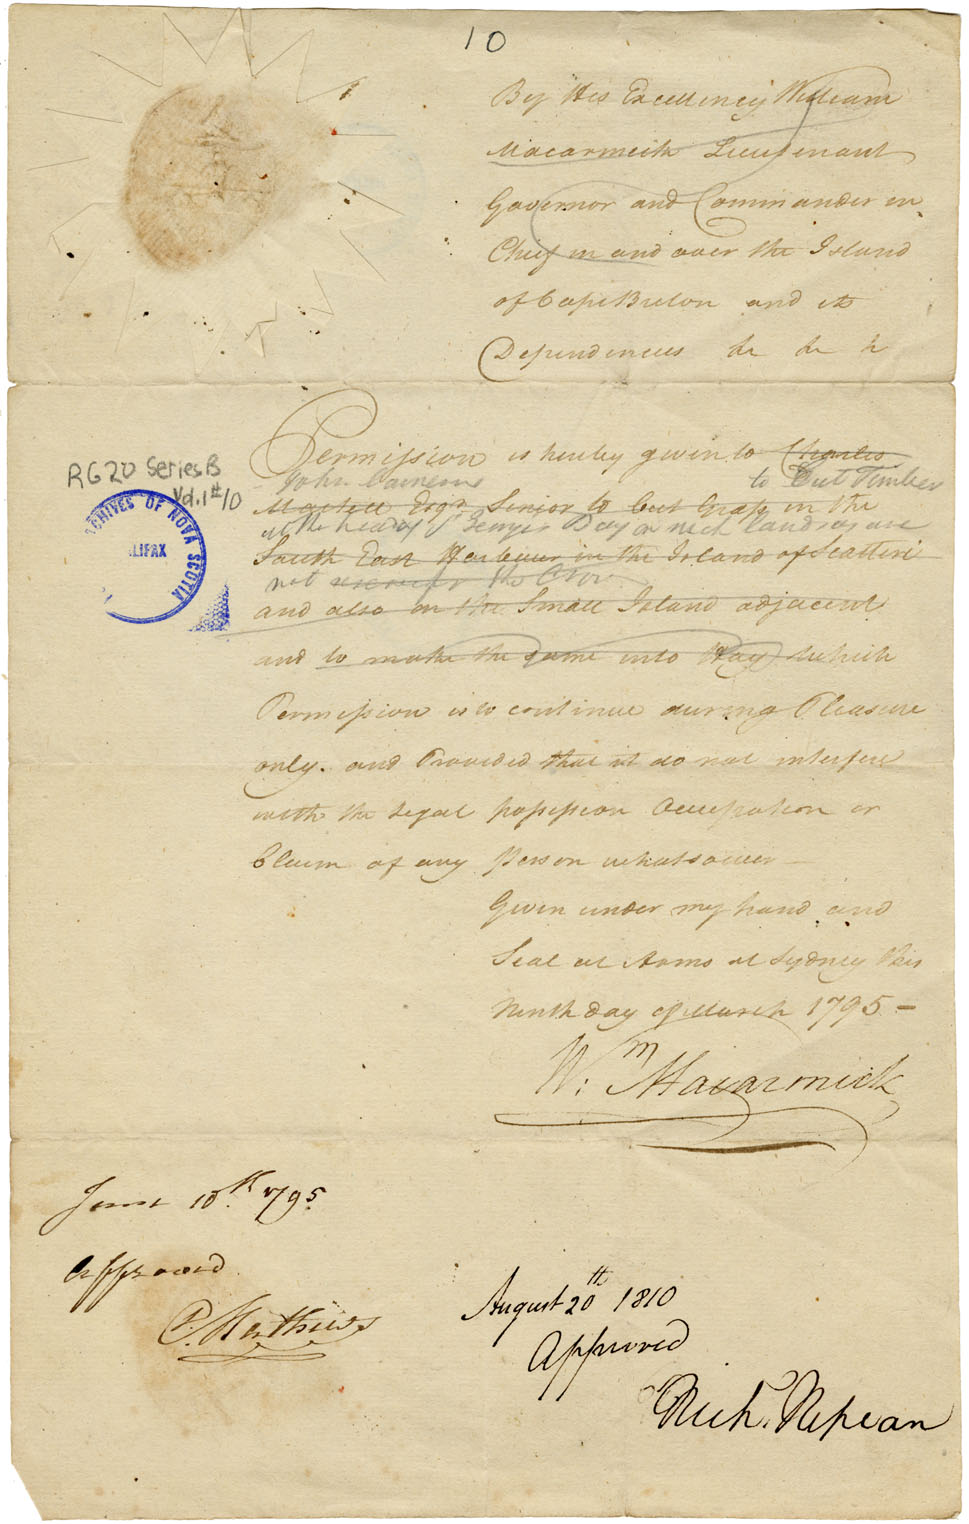 10
By His Excellency William
Macarmick Lieutenant
Governor and Commander in
Chief in and over the Island
of Cape Breton and its
Dependencies &c &c &c
RG20 Series B
Vol. 1 #10
ARCHIVES OF NOVA SCOTIA
HALIFAX
Permission is hereby given to Charles
John to Cut Timber
Martell Esqr Senior to Cut Grass in the
at the head of Bay on such lands as are
South East Harbour in the Island of Scatteri
not the Crown
and also on the Small Island adjacent
and to make the same into Hay which
Permission is to continue during Pleasure
only. and Provided that it do not interfere
with the legal possession Occupation or
Claim of any Person whatsoever
Given under my hand and
Seal at Arms at Sydney this
Ninth day of March 1795 –
Wm Macarmick
June 10th 1795
Approved
D. Mathews
August 20th 1810
Approved
Nich. Nepean